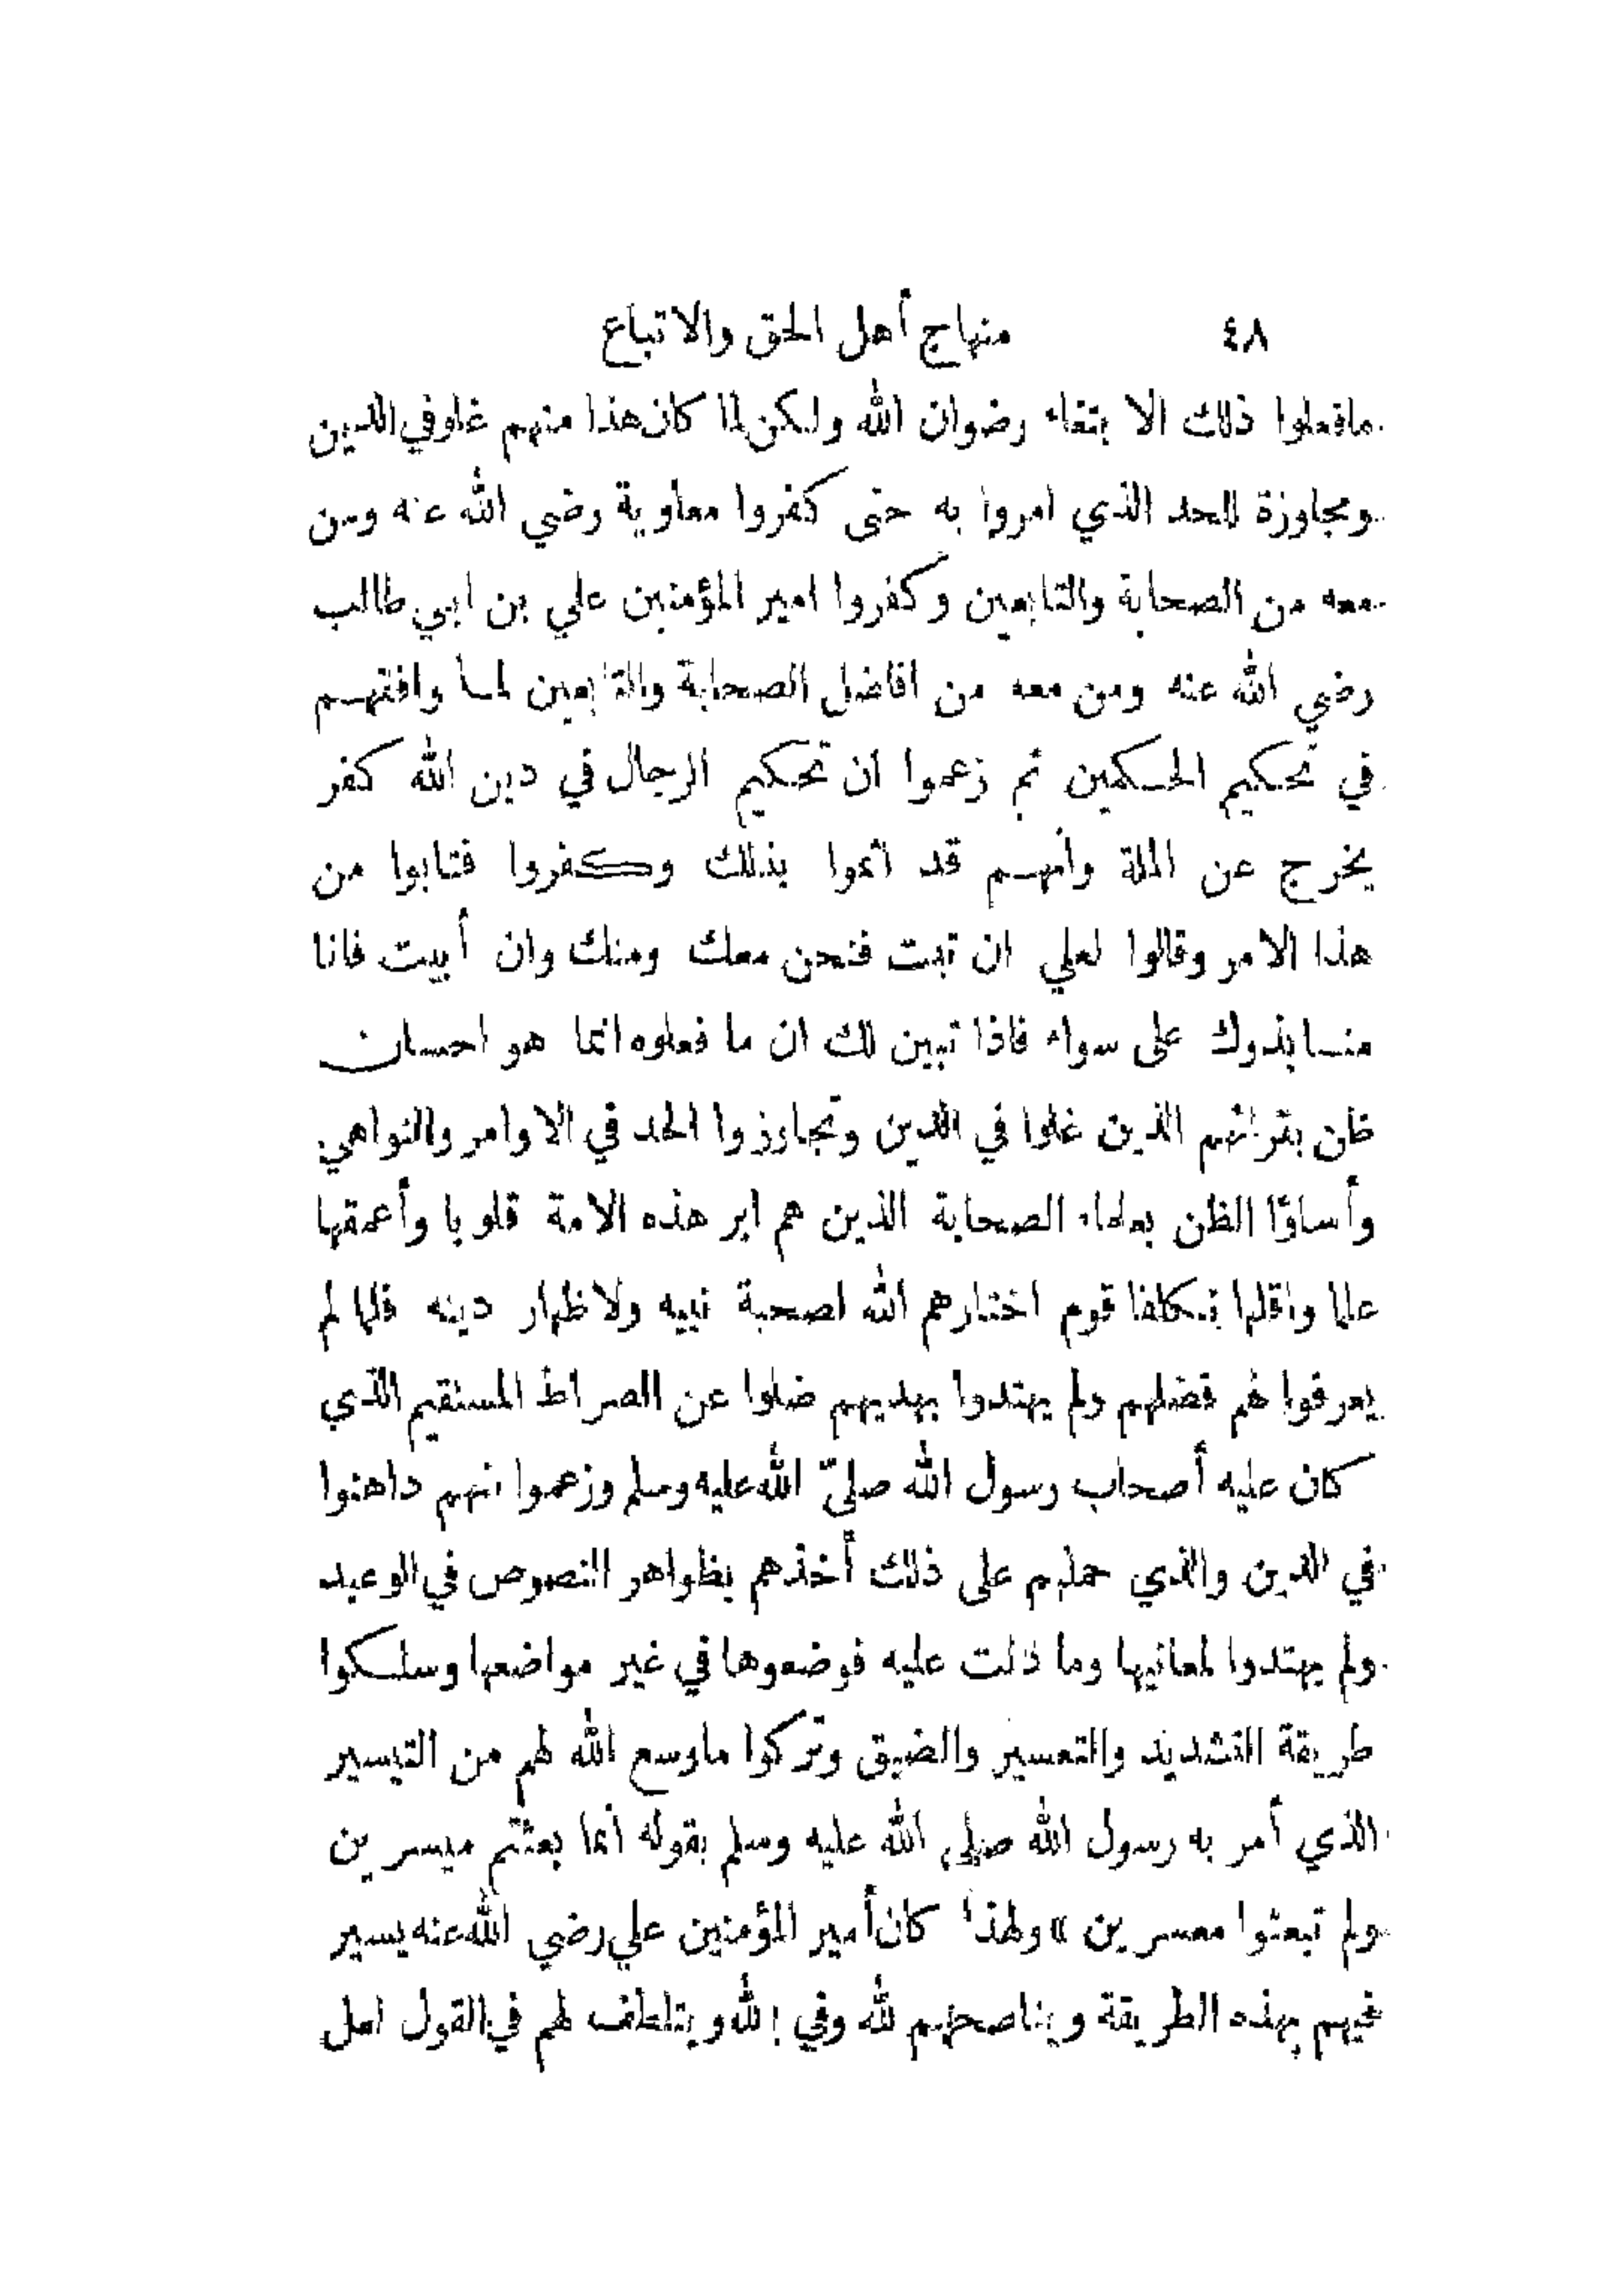 ٤٨ منهاج أهل الحق والاتباع
مافعلوا ذلك الا بتغاء رضوان الله ولكن لما كان هذا منهم غلو في الدين
ومجاوزة للحد الذي امروا به حتى كفروا معاوية رضي الله عنه ومن
معه من الصحابة والتابعين وكفروا امير المؤمنين علي بن ابي طالب
رضي الله عنه ومن معه من افاضل الصحابة والتابعين لما وافقهم
في تحكيم الحكمين ثم زعموا ان تحكيم الرجال في دين الله كفر
يخرج عن الملة وأنهم قد اثموا بذلك وكفروا فتابوا من
هذا الامر وقالوا لعلي ان تبت فنحن معك ومنك وان أبيت فانا
منابذوك على سواء فاذا تبين لك ان ما فعلوه انما هو احسان
ظن بقرائهم الذين غلوا في الدين وتجاوزوا الحد في الاوامر والنواهي
وأساؤا الظن بعلماء الصحابة الذين هم ابر هذه الامة قلوبا وأعمقها
علما واقلها تكلفا قوم اختارهم الله لصحبة نبيه ولاظهار دينه فلما لم
يعرفوا لهم فضلهم ولم يهتدوا بهديهم ضلوا عن الصراط المستقيم الذي
كان عليه أصحاب رسول الله صلىّ الله عليه وسلم وزعموا انهم داهنوا
في الدين والذي حملهم على ذلك أخذهم بظواهر النصوص في الوعيد
ولم يهتدوا لمعانيها وما دلت عليه فوضعوها في غير مواضعها وسلكوا
طريقة التشديد والتعسير والضيق وتركوا ماوسع الله لهم من التيسير
الذي أمر به رسول الله صلى الله عليه وسلم بقوله أنما بعثتم ميسرين
ولم تبعثوا معسرين » ولهذا كان أمير المؤمنين علي رضي الله عنه يسير
فيهم بهذه الطريقة ويناصحهم لله وفي الله ويتلطف لهم في القول لعل